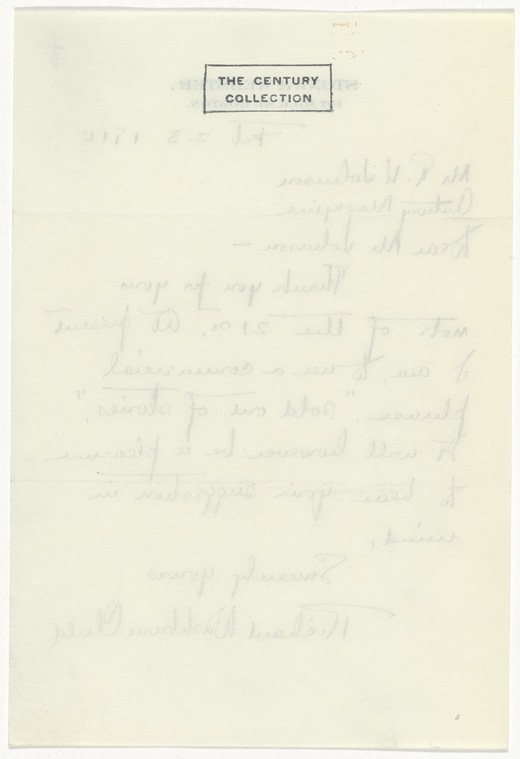 THE CENTURY
COLLECTION
Feb 23 1910
Mr R. U Johnson
Century Magazine
Dear Mr Johnson —
Thank you for your
note of the 21st. At present
I am, to use a commercial
phrase, "sold out of stories".
It will however be a pleasure
to bear your suggestion in
mind.
Sincerely yours
Richard Washburn Child